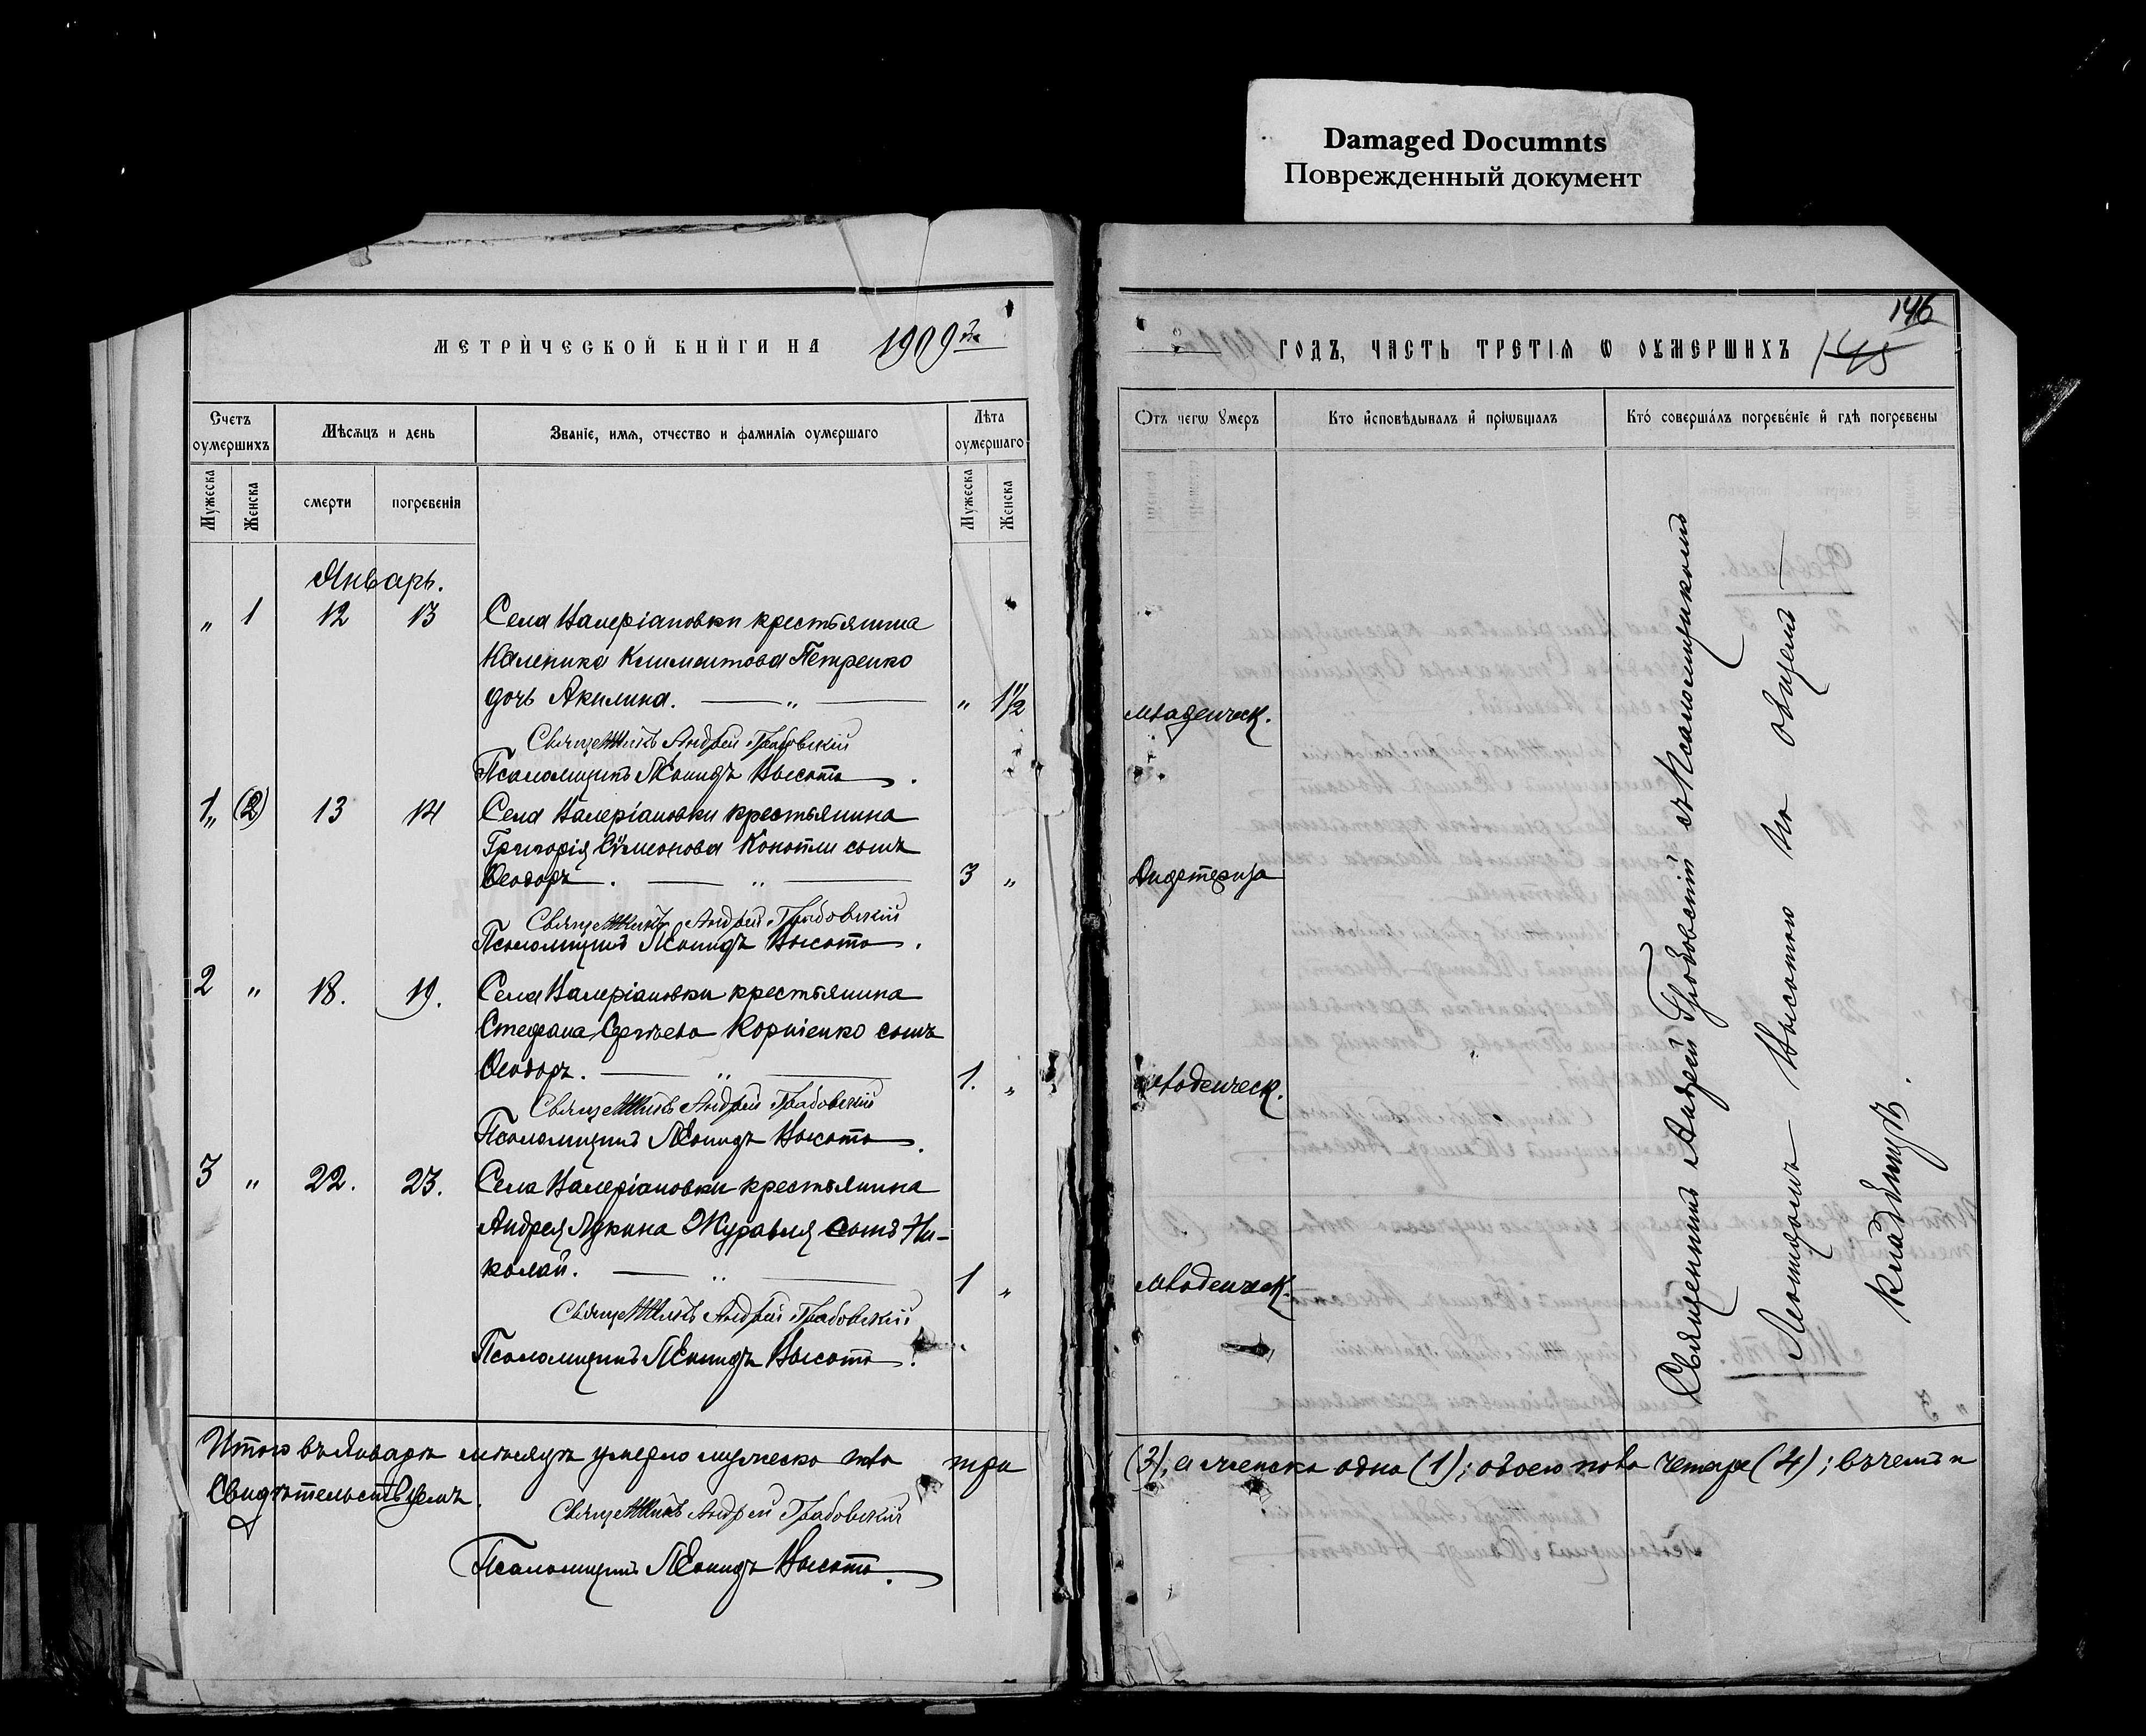 Damaged Documnts
Поврежденный документ
МЕТРИЧЕСКОЙ КНИГИ НА 1909 й
Счетъ оумершихъ
Мѣсяцъ и день
Званіе, имя, отчество и фамилія оумершаго
Лѣта оумершаго
Мужеска
Женска
смерти
погребенія
Мужеска
Женска
Январь.
„ 1 12 13 Села Валеріановки крестьянина
Климентова Петренко
дочь Акилина. — „ — „ 1½
Священникъ Андрей Грабовскій
Псаломщикъ Леонидъ Высота.
1 „ (2) 13 14 Села Валеріановки крестьянина
Григорія Сѵмеонова Конотли сынъ
Ѳеодоръ. — „ — 3 „
Священникъ Андрей Грабовскій
Псаломщикъ Леонидъ Высота.
2 „ 18. 19. Села Валеріановки крестьянина
Стефана Сергѣева Корніенко сынъ
Ѳеодоръ. — „ — 1. „
Священникъ Андрей Грабовскій
Псаломщикъ Леонидъ Высота.
3 „ 22. 23. Села Валеріановки крестьянина
Андрея Лукина Журавля сынъ Ни-
колай. — „ — 1 „
Священникъ Андрей Грабовскій
Псаломщикъ Леонидъ Высота.
Итого въ Январѣ мѣсяцѣ умерло мужеска пола три
свидѣтельствуемъ.
Священникъ Андрей Грабовскій
Псаломщикъ Леонидъ Высота.
146
ГОДЪ, ЧАСТЬ ТРЕТІЯ Ѡ ОУМЕРШИХЪ 145
Отъ чегѡ ᲂумеръ
Кто исповѣдывалъ и пріѡбщалъ
Кто совершалъ погребеніе и гдѣ погребены
младенческ.
Дифтерита
младенческ.
младенческ.
Священникъ Андрей Грабовскій съ Псаломщикомъ
Леонидомъ Высотою на общемъ
кладбищѣ.
(3), а женска одна (1); обоего пола четыре (4); въ чемъ и